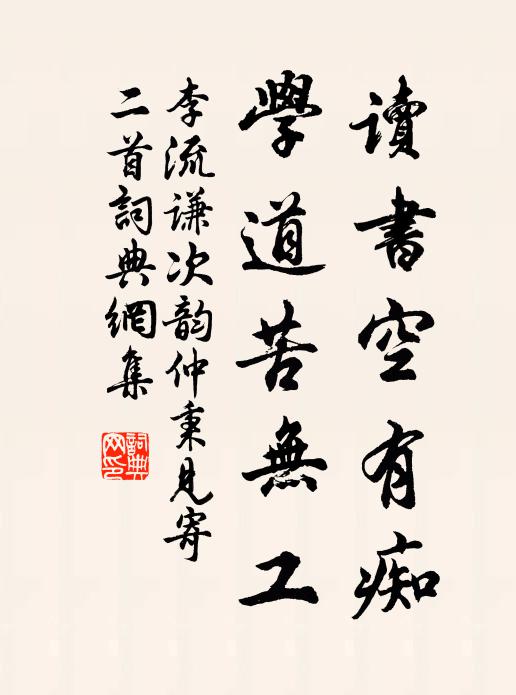 讀書空有痴
學道苦無工
李流谦次韵仲秉見寄
二首詞典網集
詞典网印